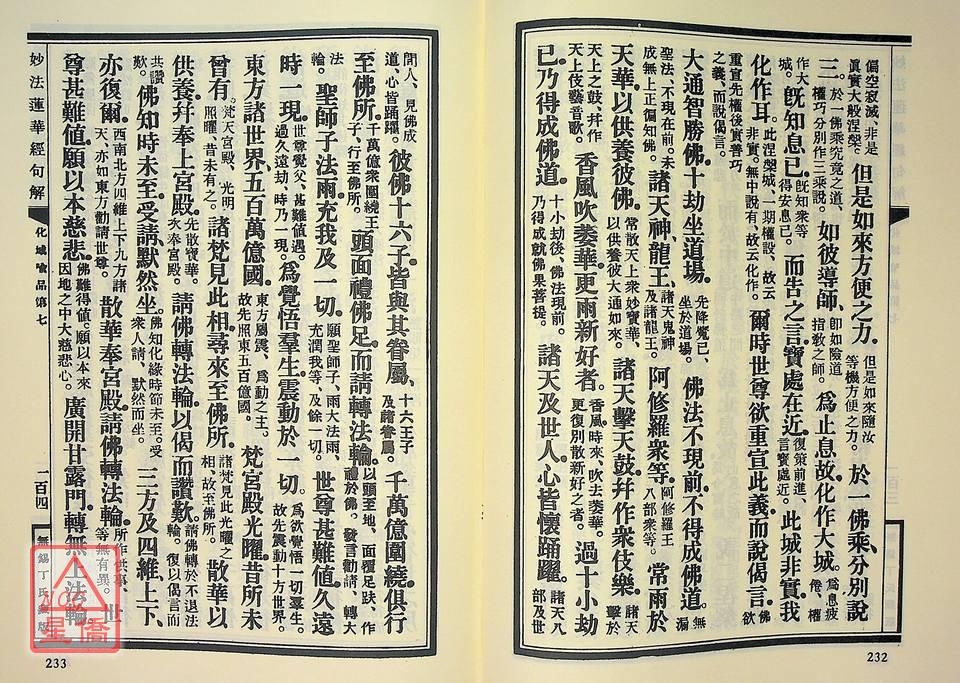 偏空寂滅、非是眞實大般涅槃。但是如來方便之力。但是如來隨汝等機方便之力。於一佛乘、分別說
三。於一佛乘究竟之道、權巧分別作三乘說。如彼導師、卽如險道指教之師。爲止息故、化作大城。爲息疲倦、權
作大城。旣知息已、旣知衆等得安息已。而告之言、寶處在近。復策前進、言寶處近。此城非實、我
化作耳。此涅槃城、一期權設、故云非實。無中說有、故云化作。爾時世尊欲重宣此義、而說偈言。佛欲
重宣先權後實善巧之義、而說偈言。
大通智勝佛、十劫坐道場、先降魔已、坐於道場。佛法不現前、不得成佛道。無漏
聖法、不現在前。未成無上正徧知佛。諸天神龍王、諸天鬼神及諸龍王。阿修羅衆等、阿修羅王八部衆等。常雨於
天華、以供養彼佛。常散天上衆妙寶華、以供養彼大通如來。諸天擊天鼓、幷作衆伎樂。諸天擊於
天上之鼓、幷作天上伎藝音歌。香風吹萎華、更雨新好者。香風時來、吹去萎華。更復別散新好之者。過十小劫
已、乃得成佛道。十小劫後、佛法現前。乃得成就佛果菩提。諸天及世人、心皆懷踊躍。諸天八部及世
232
間人、見佛成道、心皆踊躍。彼佛十六子、皆與其眷屬、十六王子及諸眷屬。千萬億圍繞、俱行
至佛所、千萬億衆圍繞王子、行至佛所。頭面禮佛足、而請轉法輪。以頭至地、面覆足趺、作禮於佛。發言勸請、轉大法
輪。聖師子法雨、充我及一切。願聖師子、雨大法雨、充潤我等、及餘一切。世尊甚難値、久遠
時一現。世尊覺父、甚難値遇。過久遠劫、時乃一現。爲覺悟羣生、震動於一切。爲欲覺悟一切羣生。故先震動十方世界。
東方諸世界、五百萬億國。東方屬震、爲動之主、故先照東五百億國。梵宮殿光曜、昔所未
曾有。梵天宮殿、光明照曜、昔未有之。諸梵見此相、尋來至佛所。諸梵見此光曜之相、故至佛所。散華以
供養、幷奉上宮殿。先散寶華、次奉宮殿。請佛轉法輪、以偈而讚歎。請佛轉於不退法輪。復以偈言而
共讚歎。佛知時未至、受請默然坐。佛知化緣時節未至。受衆人請、默然而坐。三方及四維、上下
亦復爾。西南北方四維上下九方諸天、亦如東方勸請世尊。散華奉宮殿、請佛轉法輪。所作供事、等無有異。世
尊甚難値。願以本慈悲、佛難得値。願以本來因地之中大慈悲心。廣開甘露門、轉無上法輪
妙法蓮華經句解
化城喩品第七
一百四
無錫丁氏藏版
NCC
星僑
233